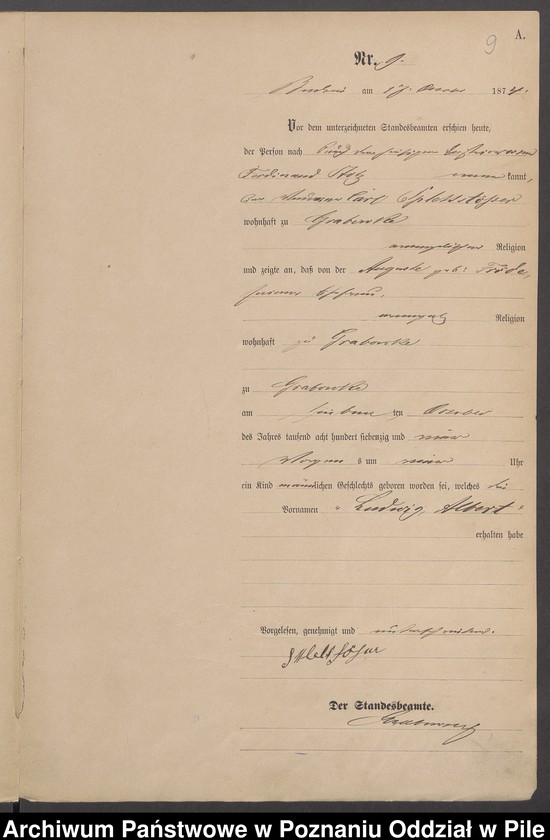 9
A.
Nr. 9.
am 17. October 1874.
Vor dem unterzeichneten Standesbeamten erschien heute,
der Person nach durch den
Ferdinand kannt,
der Carl Splettstösser
wohnhaft zu Grabowke
evangelischer Religion
und zeigte an, daß von der Auguste geb:
seiner Ehefrau,
evangel Religion
wohnhaft zu Grabowke
zu Grabowke
am sieben ten October
des Jahres tausend acht hundert siebenzig und vier
Morgen s um Uhr
ein Kind männlichen Geschlechts geboren worden sei, welches die
Vornamen " Ludwig, Albert "
erhalten habe
Vorgelesen, genehmigt und unterschrieben.
Splettstösser
Der Standesbeamte.
Archiwum Państwowe w Poznaniu Oddział w Pile